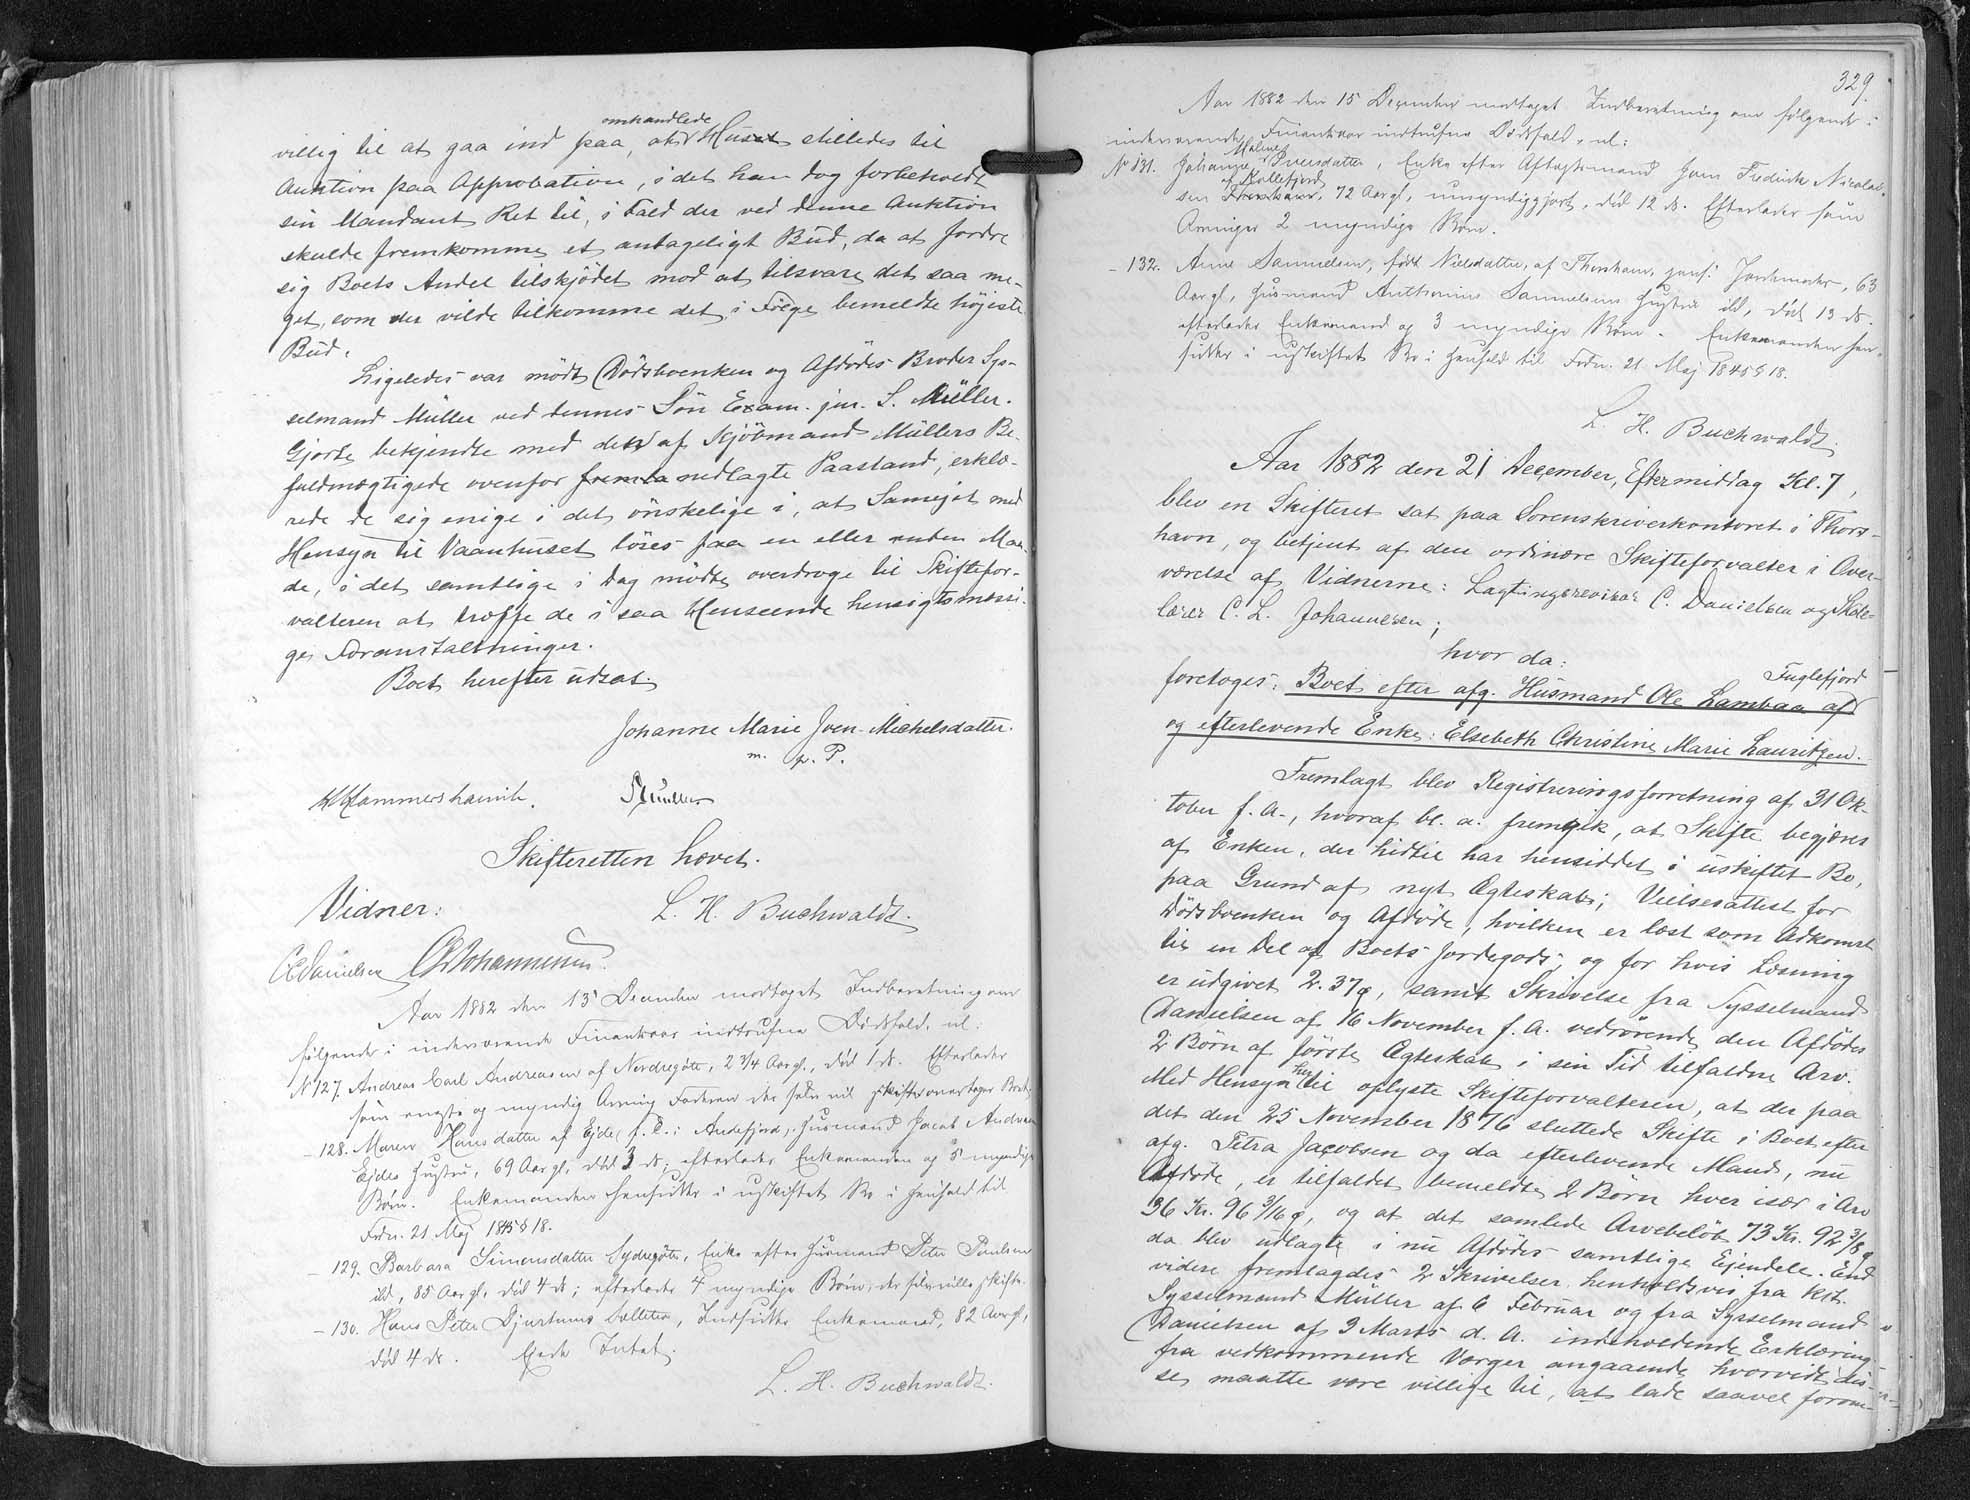 omhandlede
villig til at gaa ind paa, at Huset stilledes til
Auktion paa Approbation, i det han dog forbeholdt
sin Mandant Ret til, i Fald der ved denne Auktion
skulde fremkomme et antageligt Bud, da at fordre
sig Boets Andel tilskjødet mod at tilsvare det saa me-
get, som der vilde tilkomme det i Følge bemeldte højeste
Bud.
Ligeledes var mødt Dødsboenken og Afdødes Broder Sys-
selmand Müller ved dennes Søn Exam. jur. S. Müller.
Gjorte bekjendte med den af Kjøbmand Müllers Be-
fuldmægtigede ovenfor nedlagte Paastand, erklæ-
rede de sig enige i det ønskelige i, at Samejet med
Hensyn til Vaanhuset løses paa en eller anden Maa-
de, i det samtlige i Dag mødte overdroge til Skiftefor-
valteren at træffe de i saa Henseende hensigtsmæssi-
ge Foranstaltninger.
Boet herefter udsat.
Johanne Marie Joen-Michelsdatter.
m. p. P.
Hammershaimb. SMüller
Skifteretten hævet.
Vidner: L. H. Buchwaldt.
C Danielsen CL Johannesen.
Aar 1882 den 13 December modtaget Indberetning om
følgende i indeværende Finantsaar indtrufne Dødsfald, nl:
No 127. Andreas Carl Andreasen af Nordregøte, 2 3/4 Aar gl., død 1 ds. Efterlader
som eneste og myndig Arving Faderen der selv vil skifte
- 128. Maren Hansdatter af Ejde, f. P. i Andefjord, Husmand Jacob
Ejdes Hustru, 69 Aar gl., død 3 ds; efterlader Enkemanden og 5 myndige
Børn. Enkemanden hensidder i uskiftet Bo i Henhold til
Frdn. 21 Maj 1845 § 18.
- 129. Barbara Simonsdatter Sydregøte, Enke efter Husmand Peter Poulsen
ibd, 85 Aar gl., død 4 ds; efterlader 4 myndige Børn, der selv ville skifte.
- 130. Hans Peter Djurhuus Kollefjord, Indsidder Enkemand, 82 Aar gl,
død 4 ds. Ejede Intet.
L. H. Buchwaldt.
329.
Aar 1882 den 15 December modtaget Indberetning om følgende i
indeværende Finantsaar indtrufne Dødsfald, nl:
No 131. Johanne Malene Poulsdatter, Enke efter Aftægtsmand Joen Fredrik Nicolai-
sen af Kollefjord, 72 Aar gl., umyndiggjort, død 12 ds. Efterlader som
Arvinger 2 myndige Børn.
- 132. Anne Samuelsen, født Nielsdatter, af Thorshavn, 63
Aar gl., Husmand Anthonius Samuelsens Hustru ibd, død 13 ds.
efterlader Enkemand og 3 myndige Børn. Enkemanden hen-
sidder i uskiftet Bo i Henhold til Frdn. 21 Maj 1845 § 18.
L. H. Buchwaldt.
Aar 1882 den 21 December, Eftermiddag Kl. 7,
blev en Skifteret sat paa Sorenskriverkontoret i Thors-
havn, og betjent af den ordinære Skifteforvalter i Over-
værelse af Vidnerne: Lagtingsrevisor C. Danielsen og Skole-
lærer C. L. Johannesen;
hvor da:
foretoges: Boet efter afg. Husmand Ole Lambaa af Fuglefjord
og efterlevende Enke: Elsebeth Christine Marie Lauritzen.
Fremlagt blev Registreringsforretning af 31 Ok-
tober f. A., hvoraf bl. a. fremgik, at Skifte begjæres
af Enken, der hidtil har hensiddet i uskiftet Bo,
paa Grund af nyt Ægteskab; Vielsesattest for
Dødsboenken og Afdøde, hvilken er læst som Adkomst
til en Del af Boets Jordegods, og for hvis Læsning
er udgivet 2. 37 ø, samt Skrivelse fra Sysselmand
Danielsen af 16 November f. A. vedrørende den Afdødes
2 Børn af første Ægteskab i sin Tid tilfaldne Arv.
Med Hensyn her til oplyste Skifteforvalteren, at der paa
det den 25 November 1876 sluttede Skifte i Boet efter
afg. Petra Jacobsen og da efterlevende Mand, nu
Afdøde, er tilfaldet bemeldte 2 Børn hver især i Arv
36 Kr. 96 3/16 ø, og at det samlede Arvebeløb 73 Kr. 92 3/8 ø
da blev udlagte i nu Afdødes samtlige Ejendele. End
videre fremlagdes 2 Skrivelser henholdsvis fra Kst.
Sysselmand Müller af 6 Februar og fra Sysselmand
Danielsen af 9 Marts d. A. indeholdende Erklæring
fra vedkommende Værger angaaende hvorvidt dis-
se maatte være villige til, at lade saavel foran-